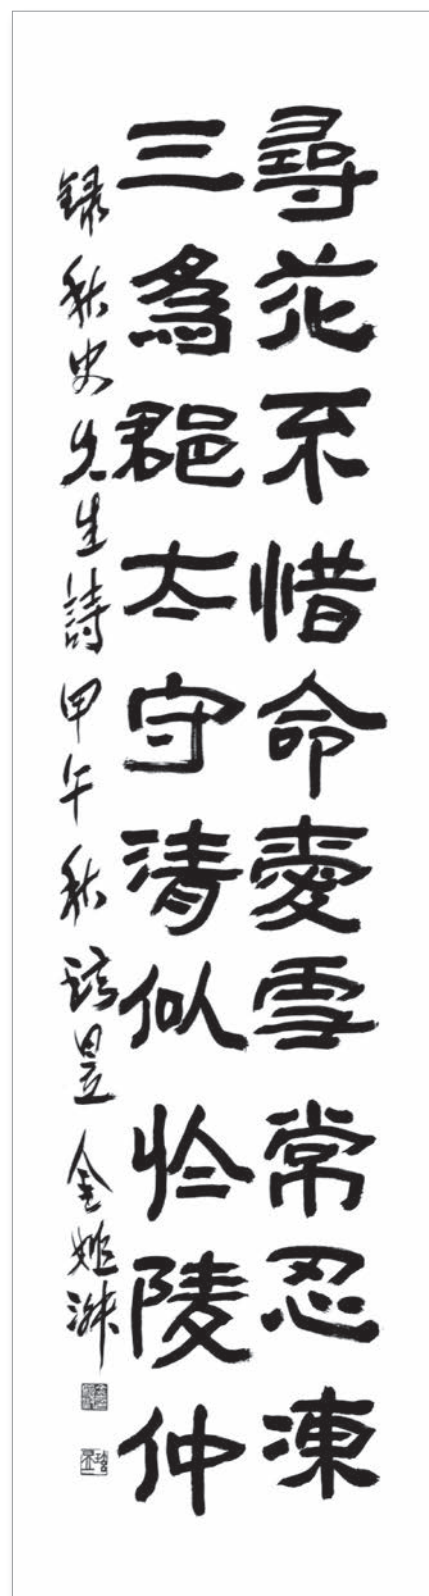 尋花不惜命愛雪常忍凍
三為郡太守清似於陵仲
錄秋史先生詩甲午秋昱金